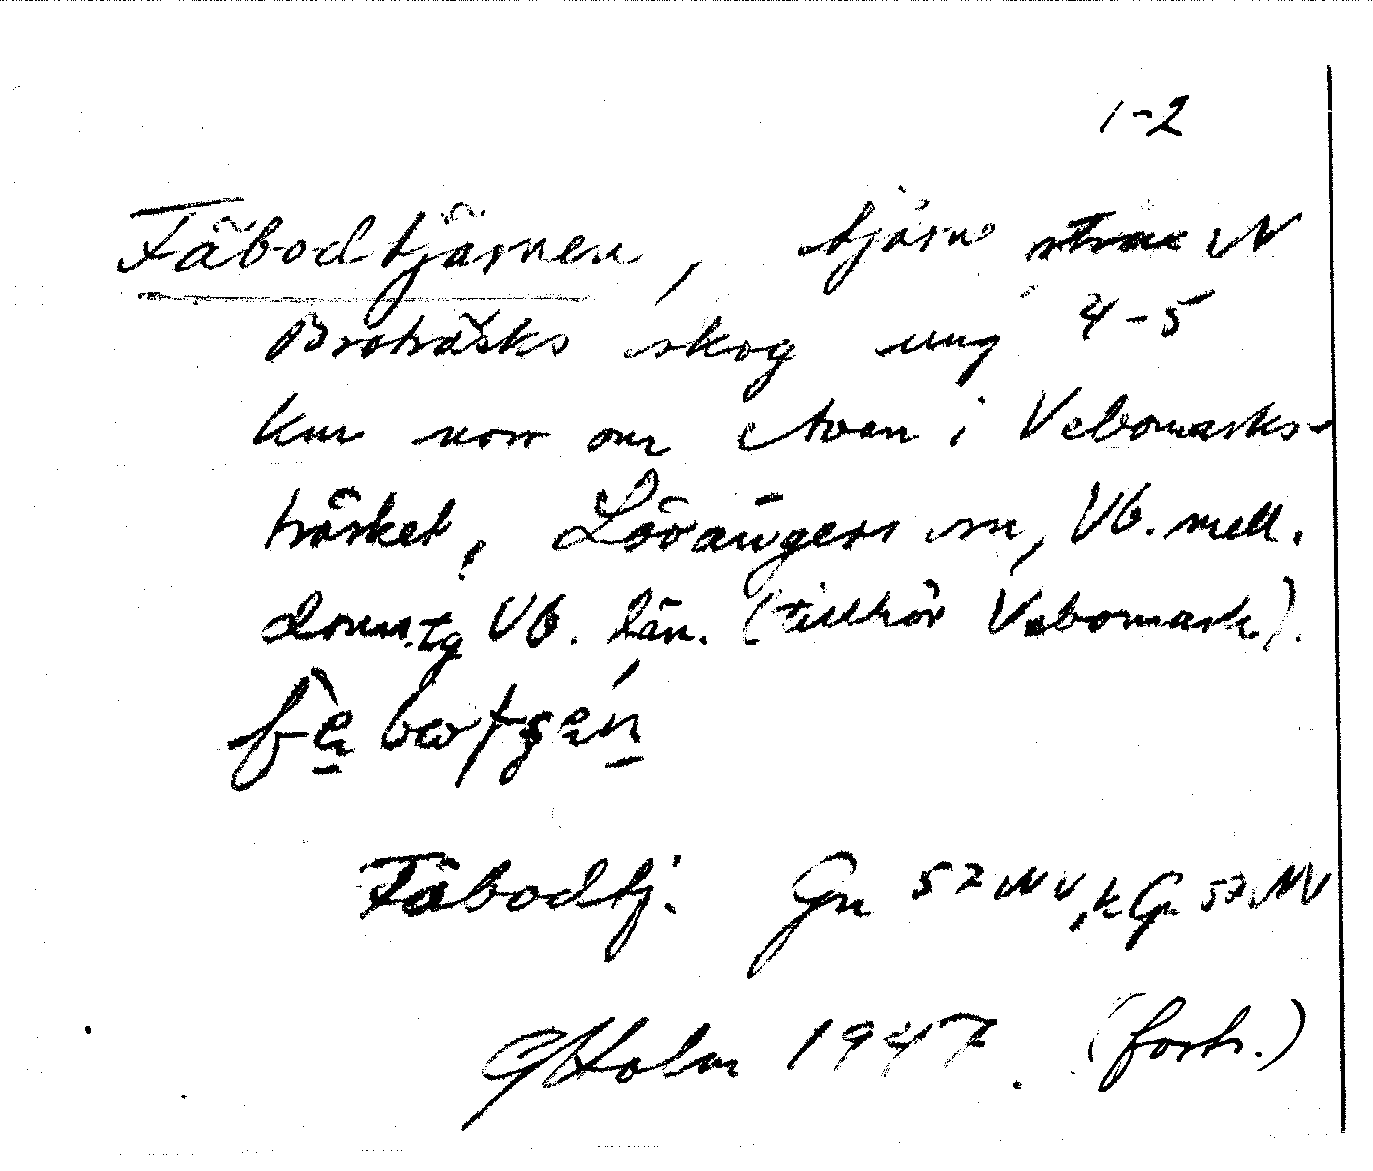 1-2
Fäbodtjärnen, tjärn strax N
Broträsks skog ung 4-5
km norr om Avan i Vebomarks-
träsket, Lövångers sn, Vb. mell.
doms.tg Vb. län. (tillhör Vebomark).
Fäbodtj. Gn 57 NV, k G 57 NV
GHolm 1947. (forts.)